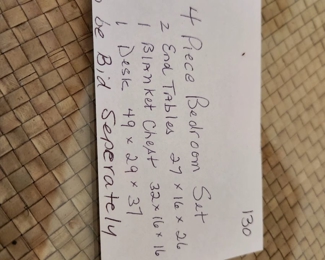 130
4 Piece Bedroom Set
2 End Tables 27 x 16 x 26
1 Blanket Chest 32 x 16 x 16
1 Desk 49 x 29 x 37
be Bid Seperately